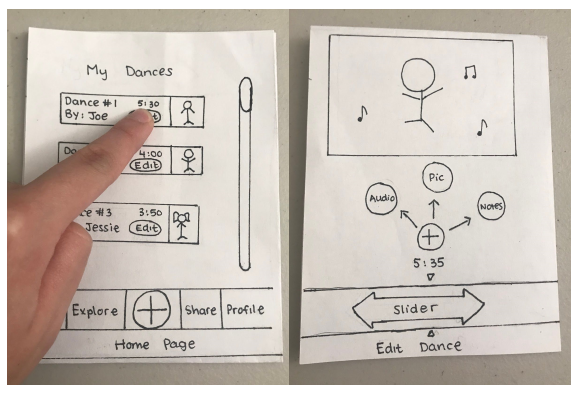 My Dances
Dance #1 5:30
By: Joe
4:00
Edit
#3 3:50
Jessie Edit
Explore + Share Profile
Home Page
Pic
Audio Notes
+
5:35
Slider
Edit Dance